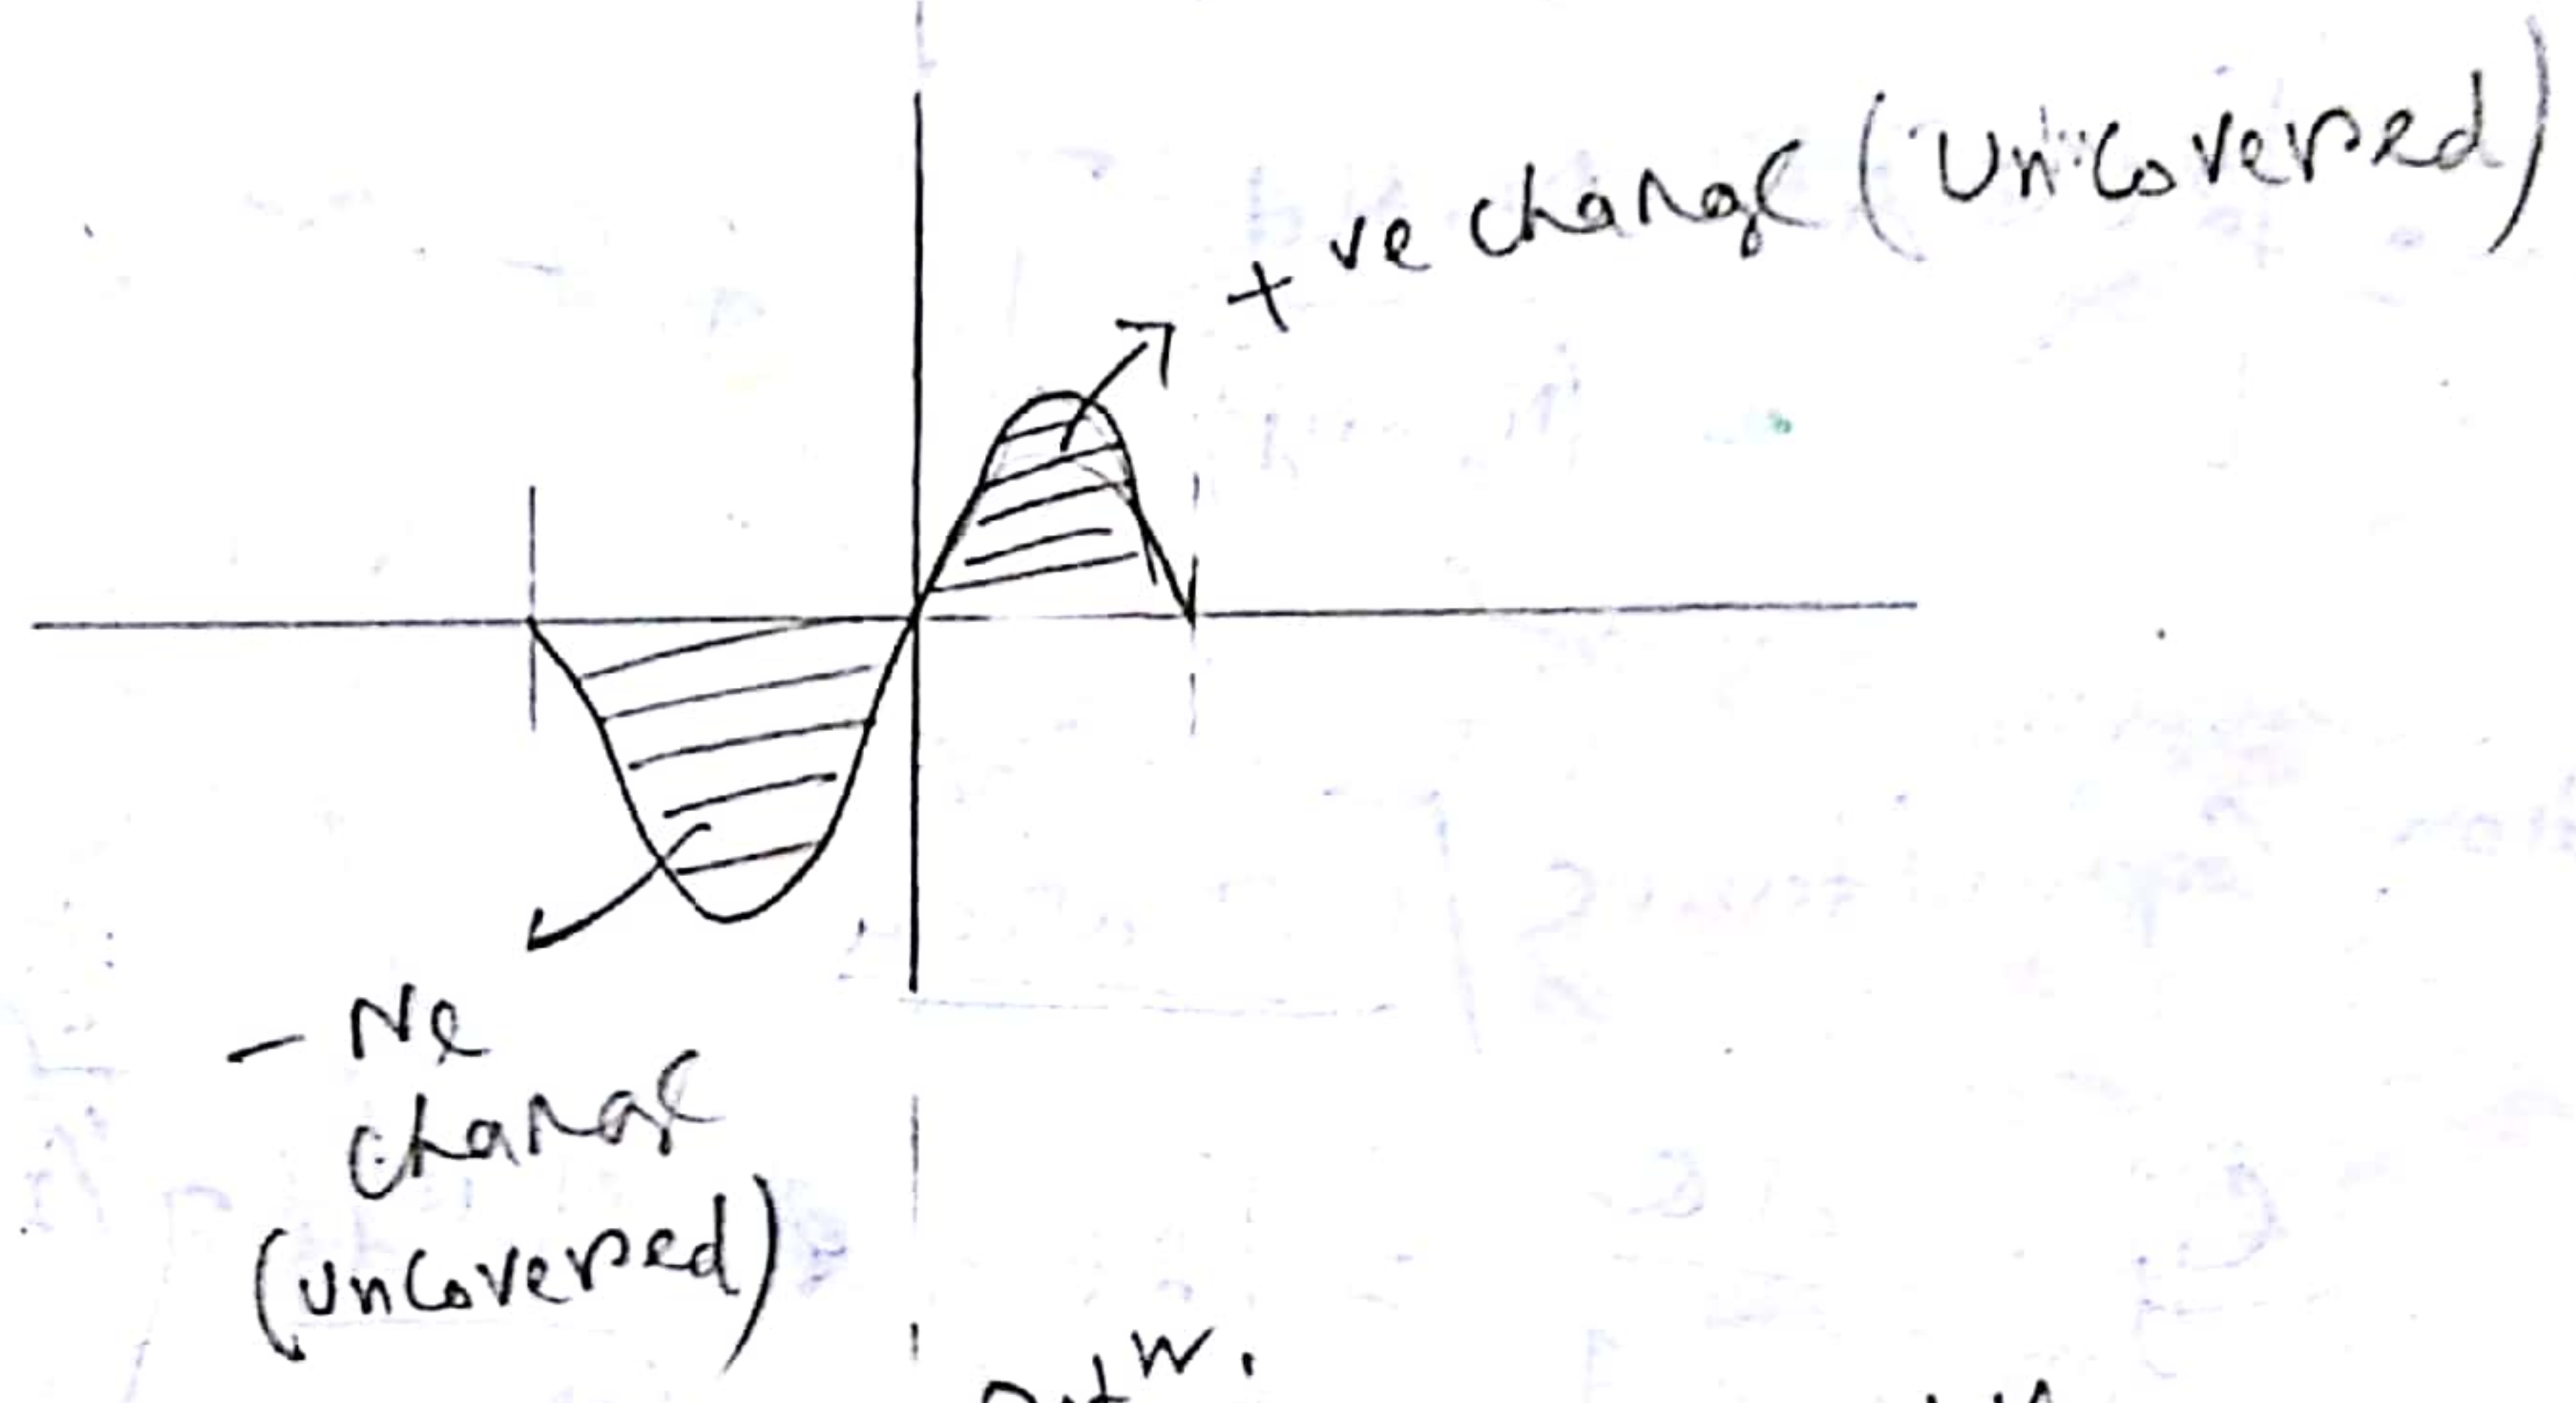 +ve charge (Uncovered)
- Ne
charge
(uncovered)